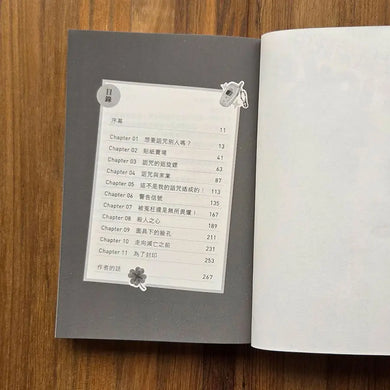 目錄
序幕 11
Chapter 01 想要詛咒別人嗎？ 13
Chapter 02 貼紙賣場 43
Chapter 03 詛咒的迴旋鏢 63
Chapter 04 詛咒與家業 87
Chapter 05 這不是我的詛咒造成的！ 113
Chapter 06 警告信號 135
Chapter 07 被冤枉還是無所畏懼！ 167
Chapter 08 殺人之心 189
Chapter 09 面具下的臉孔 211
Chapter 10 走向滅亡之前 231
Chapter 11 為了封印 253
作者的話 267